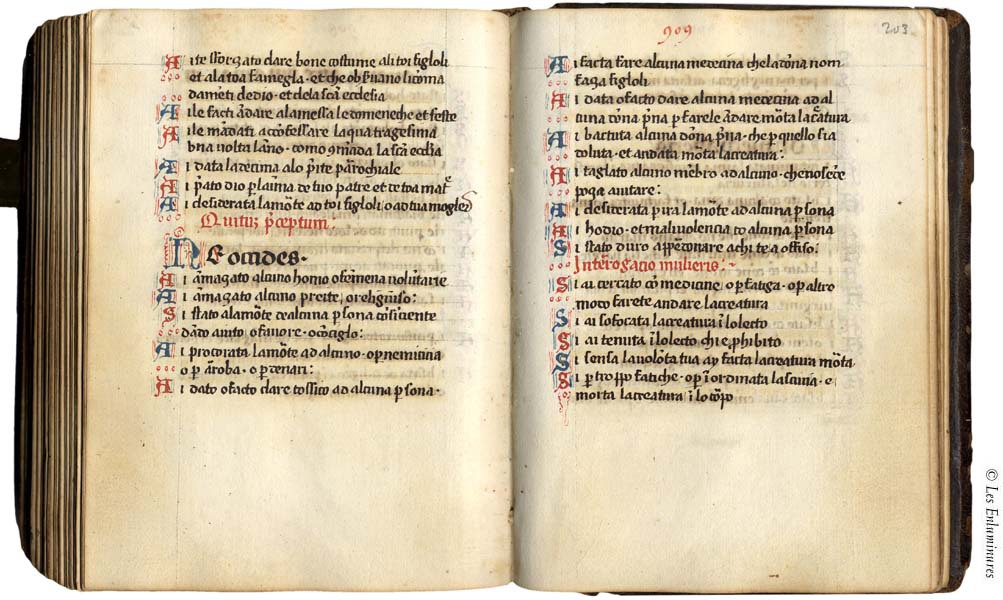 Ai te sforzato dare bone costume ali toi figloli
et ala toa famegla · et che obs̃uano li coma
dam̃eti de dio · et dela scã ecclesia
Ai le facti ãdare ala messa le domeneche et feste
Ai le mãdati a cõfessare la quatragesima
una uolta lãno · como cõmãda la scã ecc̃ia
Ai data la decima alo p̃ite parrochiale
Ai p̃gato dio p̱ laima de tuo patre et de toa mat̃
Ai desiterata la mõte ad toi figloli o ad tua mogle
Quintuȝ p̃ceptum
NE occides ·
Ai ãmazato alcuno homo o femena uoluñtarie
Ai ãmazato alcuno preite, o religiuso:
Si stato ala mõte de alcuna p̱sona cõsciente
dãto aiuto o fauore · o cõsiglo:
Ai procorata la mõte ad alcuno · op̱ nemicitia
o p̱ ãroba · o p̱ denari:
Ai dato o facto dare tossico ad alcuna p̱sona ·
909
203
Ai facta fare alcuna medecina che la dõna nom
faza figloli
Ai data o facto dare alcuna medecina ad al
cuna dõna p̃na p̱ farele ãdare mõta la c̃atura
Ai battuta alcuna dõna p̃na · che p̱ quello sia
doluta · et andata mõta la creatura:
Ai taglato alcuno mẽbro ad alcuno · che no se ce
poza aiutare:
Ai desiterata p̱ ira la mõte ad alcuna p̱sona
Ai hodio · et maliuolencia cõ alcuna p̱sona
Si stato duro a p̱donare a chi te a offiso:
Interrogacio mulieris:
Si ai cercato cõ medicine · o p̱ fatiga · o p̱ altro
moto farete andare la creatura
Si ai sofocata la creatura ĩ lo lecto
Si ai tenuta ĩ lo lecto chi è p̱hibito
Si sensa la uolõta tua ay facta la creatura mõta ·
Si p̱ troppo fatiche · o p̱ ĩordinata lasciuia · e
morta la creatura ĩ lo corpo
© Les Enluminures